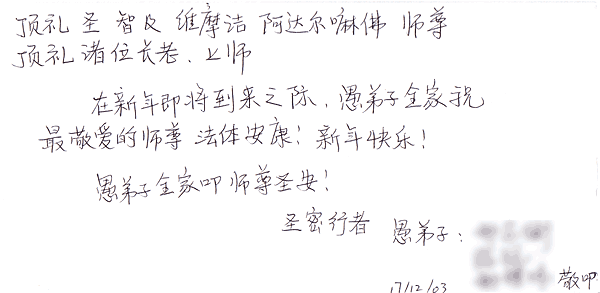 顶礼 圣 智及 维摩洁 阿达尔嘛佛 师尊
顶礼 诸位长老、上师
在新年即将到来之际，愚弟子全家祝
最敬爱的师尊 法体安康！新年快乐！
愚弟子全家叩 师尊圣安！
圣密行者 愚弟子：
敬叩
17/12/03